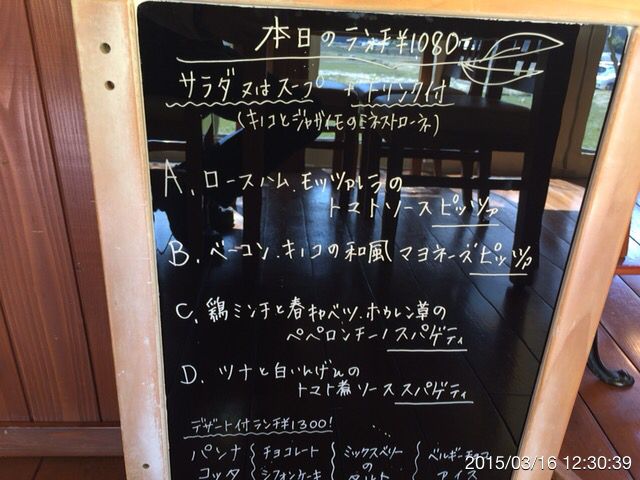 本日のランチ¥1080
サラダ又はスープ + ドリンク付
(キノコとジャガイモのミネストローネ)
A. ロースハム.モッツァレラの
トマトソースピッツァ
B. ベーコン.キノコの和風マヨネーズピッツァ
C. 鶏ミンチと春キャベツ.ホウレン草の
ペペロンチーノスパゲティ
D. ツナと白いんげんの
トマト煮ソーススパゲティ
デザート付ランチ¥1300!
パンナ チョコレート ミックスベリー ベルギーチョコ
コッタ シフォンケーキ の アイス
タルト
2015/03/16 12:30:39